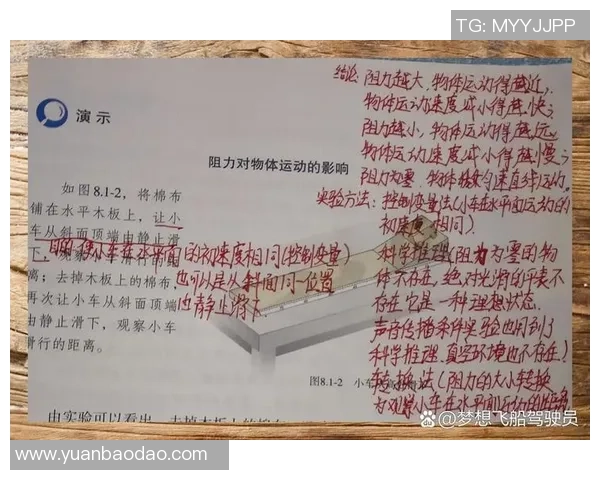 TG: MYYJJPP
演示
阻力对物体运动的影响
如图8.1-2，将棉布
铺在水平木板上，让小
车从斜面顶端由静止滑
下，观察小车
离；去掉木板上的棉布，
再次让小车从斜面顶端
由静止滑下，观察小车
滑行的距离。
图8.1-2 小车
由实验可以看出，去掉木板上的棉布
目的：使小车在水平面的初速度相同(控制变量)
也可以是从斜面同一位置
由静止滑下
结论：阻力越大，物体运动得越近，
物体运动速度减小得越快；
阻力越小，物体运动得越远，
物体运动速度减小得越慢；
阻力为零，物体做匀速直线运动。
实验方法：控制变量法(小车在水平面运动的
初速度相同)
科学推理(阻力为零的物
体不存在，绝对光滑的平表不
存在，它是一种理想状态.
声音传播条件实验也用到了
科学推理，真空环境也不存在)
转换法(阻力的大小转换
为观察小车在水平面运动的距离
梦想飞船驾驶员
www.yuanbaodao.com